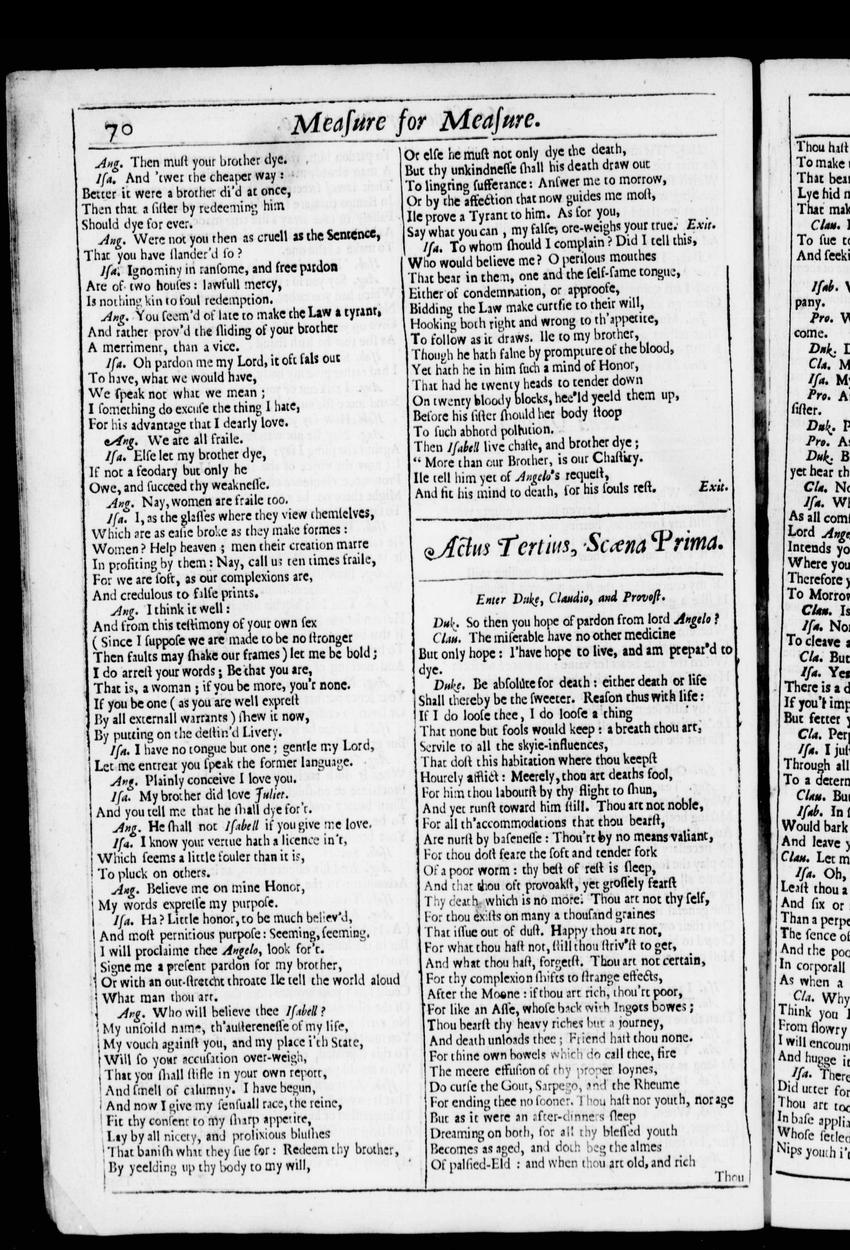 70
Meaſure for Meaſure.
Ang. Then muſt your brother dye.
Iſa. And 'twer the cheaper way :
Better it were a brother di'd at once,
Then that a ſiſter by redeeming him
Should dye for ever.
Ang. Were not you then as cruell as the Sentence,
That you have ſlander'd ſo ?
Iſa. Ignominy in ranſome, and free pardon
Are of two houſes : lawfull mercy,
Is nothing kin to foul redemption.
Ang. You ſeem'd of late to make the Law a tyrant,
And rather prov'd the ſliding of your brother
A merriment, than a vice.
Iſa. Oh pardon me my Lord, it oft fals out
To have, what we would have,
We ſpeak not what we mean ;
I ſomething do excuſe the thing I hate,
For his advantage that I dearly love.
Ang. We are all fraile.
Iſa. Elſe let my brother dye,
If not a feodary but only he
Owe, and ſucceed thy weakneſſe.
Ang. Nay, women are fraile too.
Iſa. I, as the glaſſes where they view themſelves,
Which are as eaſie broke as they make formes :
Women ? Help heaven ; men their creation marre
In profiting by them : Nay, call us ten times fraile,
For we are ſoft, as our complexions are,
And credulous to falſe prints.
Ang. I think it well :
And from this teſtimony of your own ſex
( Since I ſuppoſe we are made to be no ſtronger
Then faults may ſhake our frames ) let me be bold ;
I do arreſt your words ; Be that you are,
That is, a woman ; if you be more, you'r none.
If you be one ( as you are well expreſt
By all externall warrants ) ſhew it now,
By putting on the deſtin'd Livery.
Iſa. I have no tongue but one ; gentle my Lord,
Let me entreat you ſpeak the former language.
Ang. Plainly conceive I love you.
Iſa. My brother did love Juliet.
And you tell me that he ſhall dye for't.
Ang. He ſhall not Iſabell if you give me love.
Iſa. I know your vertue hath a licence in't,
Which ſeems a little fouler than it is,
To pluck on others.
Ang. Believe me on mine Honor,
My words expreſſe my purpoſe.
Iſa. Ha ? Little honor, to be much believ'd,
And moſt pernitious purpoſe : Seeming, ſeeming.
I will proclaime thee Angelo, look for't.
Signe me a preſent pardon for my brother,
Or with an out-ſtretcht throate Ile tell the world aloud
What man thou art.
Ang. Who will believe thee Iſabell ?
My unſoild name, th'auſtereneſſe of my life,
My vouch againſt you, and my place i'th State,
Will ſo your accuſation over-weigh,
That you ſhall ſtifle in your own report,
And ſmell of calumny. I have begun,
And now I give my ſenſuall race, the reine,
Fit thy conſent to my ſharp appetite,
Lay by all nicety, and prolixious bluſhes
That baniſh what they ſue for : Redeem thy brother,
By yeelding up thy body to my will,
Or elſe he muſt not only dye the death,
But thy unkindneſſe ſhall his death draw out
To lingring ſufferance : Anſwer me to morrow,
Or by the affection that now guides me moſt,
Ile prove a Tyrant to him. As for you,
Say what you can , my falſe, ore-weighs your true. Exit.
Iſa. To whom ſhould I complain ? Did I tell this,
Who would believe me ? O perilous mouthes
That bear in them, one and the ſelf-ſame tongue,
Either of condemnation, or approofe,
Bidding the Law make curtſie to their will,
Hooking both right and wrong to th'appetite,
To follow as it draws. Ile to my brother,
Though he hath falne by prompture of the blood,
Yet hath he in him ſuch a mind of Honor,
That had he twenty heads to tender down
On twenty bloody blocks, hee'ld yeeld them up,
Before his ſiſter ſhould her body ſtoop
To ſuch abhord pollution.
Then Iſabell live chaſte, and brother dye ;
“ More than our Brother, is our Chaſtity.
Ile tell him yet of Angelo's requeſt,
And fit his mind to death, for his ſouls reſt. Exit.
Actus Tertius, Scæna Prima.
Enter Duke, Claudio, and Provoſt.
Duk. So then you hope of pardon from lord Angelo ?
Clau. The miſerable have no other medicine
But only hope : I'have hope to live, and am prepar'd to
dye.
Duke. Be abſolute for death : either death or life
Shall thereby be the ſweeter. Reaſon thus with life :
If I do looſe thee, I do looſe a thing
That none but fools would keep : a breath thou art,
Servile to all the skyie-influences,
That doſt this habitation where thou keepſt
Hourely afflict : Meerely, thou art deaths fool,
For him thou labourſt by thy flight to ſhun,
And yet runſt toward him ſtill. Thou art not noble,
For all th'accommodations that thou bearſt,
Are nurſt by baſeneſſe : Thou'rt by no means valiant,
For thou doſt feare the ſoft and tender fork
Of a poor worm : thy beſt of reſt is ſleep,
And that thou oft provoakſt, yet groſſely fearſt
Thy death which is no more. Thou art not thy ſelf,
For thou exiſts on many a thouſand graines
That iſſue out of duſt. Happy thou art not,
For what thou haſt not, ſtill thou ſtriv'ſt to get,
And what thou haſt, forgetſt. Thou art not certain,
For thy complexion ſhifts to ſtrange effects,
After the Moone : if thou art rich, thou'rt poor,
For like an Aſſe, whoſe back with Ingots bowes ;
Thou bearſt thy heavy riches but a journey,
And death unloads thee ; Friend haſt thou none.
For thine own bowels which do call thee, fire
The meere effuſion of thy proper loynes,
Do curſe the Gout, Sarpego, and the Rheume
For ending thee no ſooner. Thou haſt nor youth, nor age
But as it were an after-dinners ſleep
Dreaming on both, for all thy bleſſed youth
Becomes as aged, and doth beg the almes
Of palſied-Eld : and when thou art old, and rich
Thou
Thou haſt
To make
That bear
Lye hid n
That mak
Clau. I
To ſue to
And ſeeki
Iſab. W
pany.
Pro. W
come.
Duk. D
Cla. M
Iſa. My
Pro. A
ſiſter.
Duk. P
Pro. As
Duk. B
yet hear th
Cla. No
Iſa. Wh
As all comf
Lord Ange
Intends yo
Where you
Therefore y
To Morrow
Clau. Is
Iſa. Non
To cleave a
Cla. But
Iſa. Yes
There is a d
If you'l imp
But fetter y
Cla. Perp
Iſa. I juſ
Through all
To a determ
Clau. But
Iſab. In ſ
Would bark
And leave y
Clau. Let m
Iſa. Oh,
Leaſt thou a
And ſix or
Than a perpe
The ſence of
And the poo
In corporall
As when a
Cla. Why
Think you I
From flowry
I will encount
And hugge it
Iſa. There
Did utter for
Thou art too
In baſe applia
Whoſe ſetled
Nips youth i't